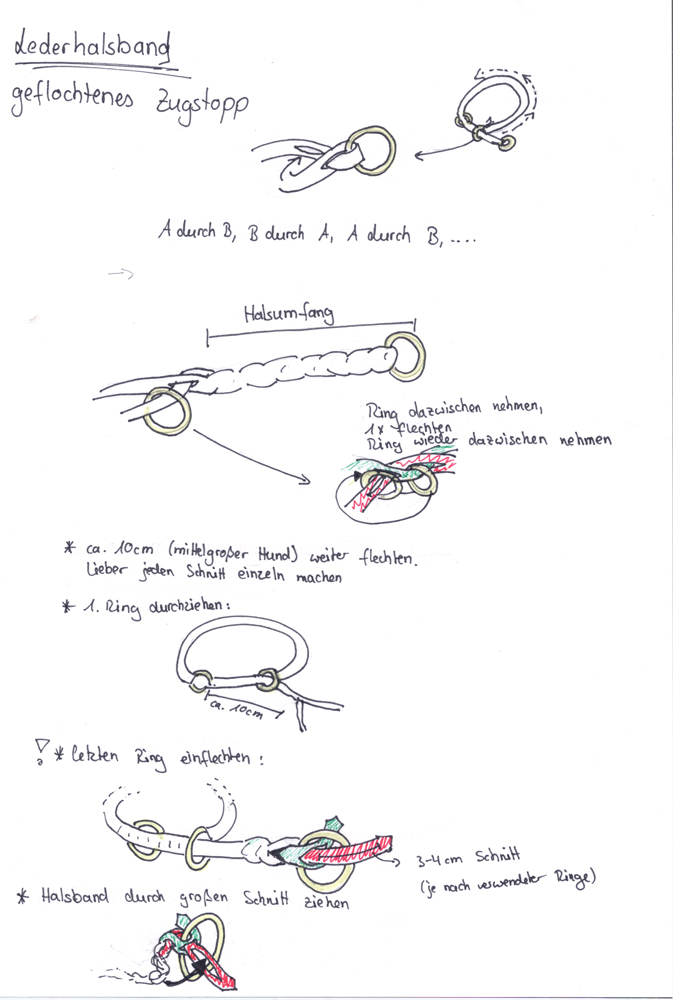 Lederhalsband
geflochtenes Zugstopp
A durch B, B durch A, A durch B, ....
Halsumfang
Ring dazwischen nehmen,
1x flechten
Ring wieder dazwischen nehmen
* ca. 10cm (mittelgroßer Hund) weiter flechten.
Lieber jeden Schnitt einzeln machen
* 1. Ring durchziehen:
ca. 10cm
* letzten Ring einflechten:
3-4cm Schnitt
(je nach verwendeter Ringe)
* Halsband durch großen Schnitt ziehen